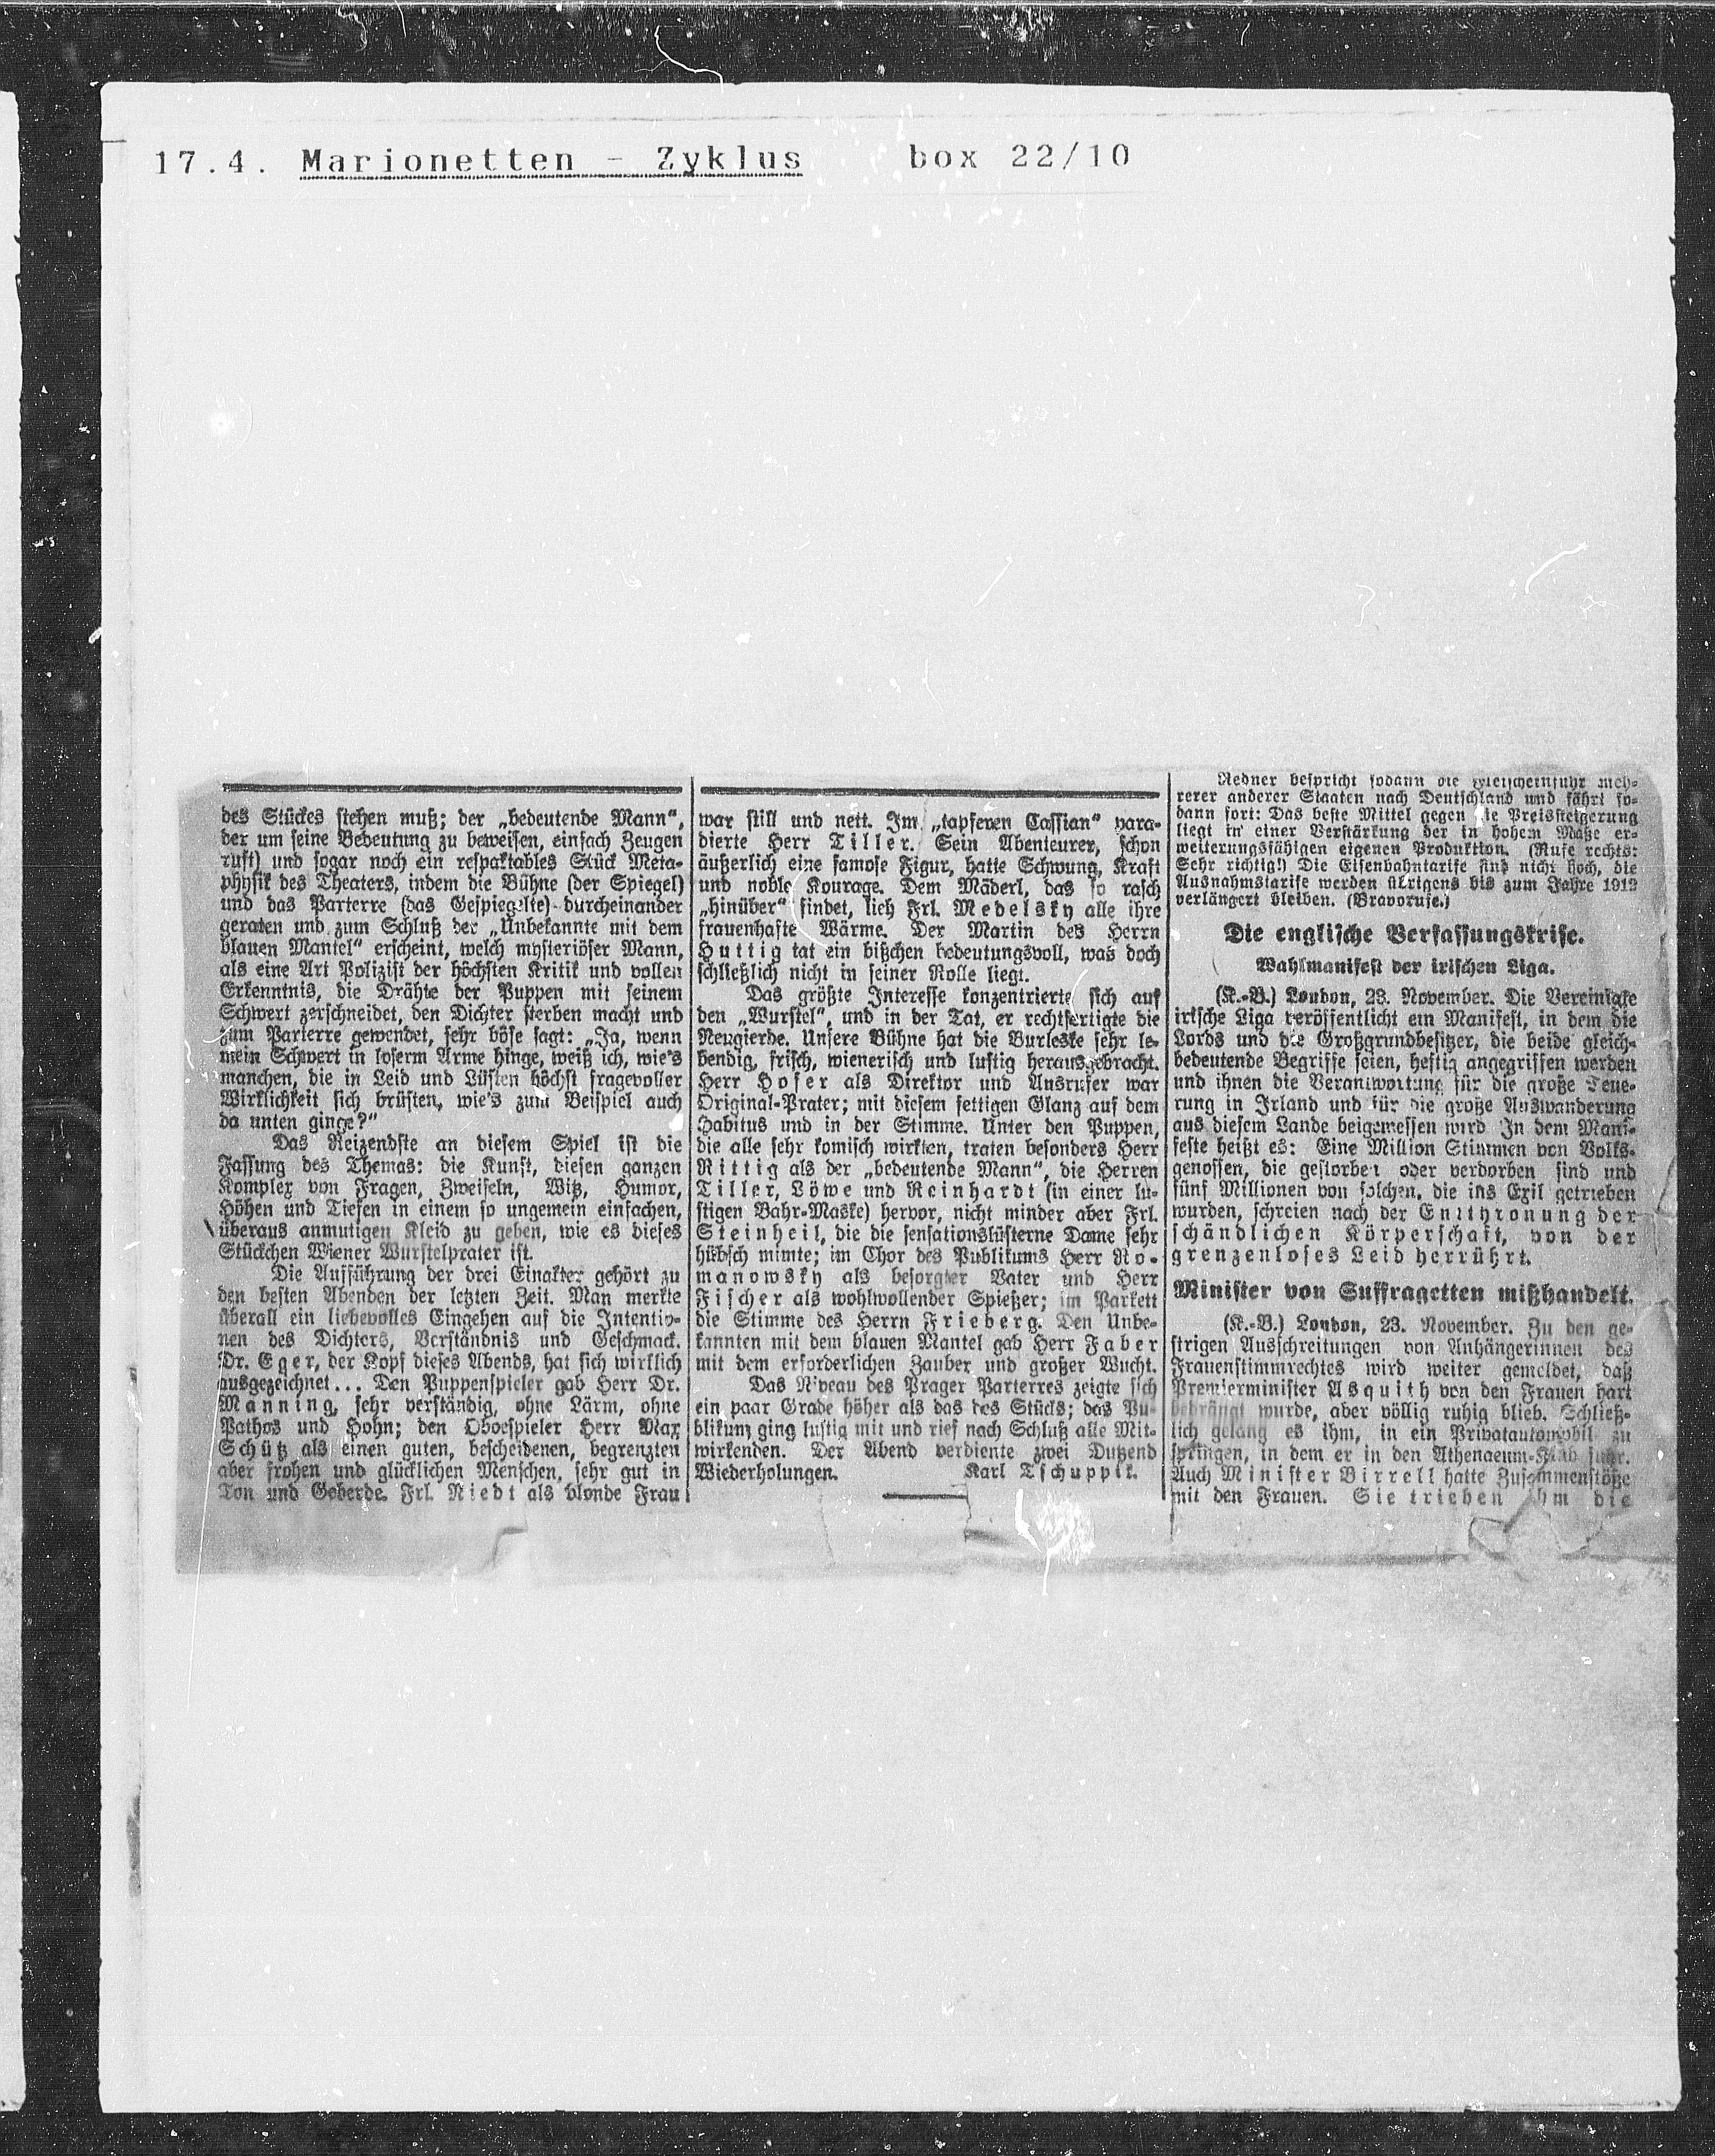 17.4. Marionetten - Zyklus box 22/10
des Stückes stehen muß; der „bedeutende Mann",
der um seine Bedeutung zu beweisen, einfach Zeugen
ruft) und sogar noch ein respektables Stück Meta-
physik des Theaters, indem die Bühne (der Spiegel)
und das Parterre (das Gespiegelte) durcheinander
geraten und zum Schluß der „Unbekannte mit dem
blauen Mantel" erscheint, welch mysteriöser Mann,
als eine Art Polizist der höchsten Kritik und vollen
Erkenntnis, die Drähte der Puppen mit seinem
Schwert zerschneidet, den Dichter sterben macht und
zum Parterre gewendet, sehr böse sagt: „Ja, wenn
mein Schwert in loserm Arme hinge, weiß ich, wie's
manchen, die in Leid und Lüsten höchst fragevoller
Wirklichkeit sich brüsten, wie's zum Beispiel auch
da unten ginge?"
Das Reizendste an diesem Spiel ist die
Fassung des Themas: die Kunst, diesen ganzen
Komplex von Fragen, Zweifeln, Witz, Humor,
Höhen und Tiefen in einem so ungemein einfachen,
überaus anmutigen Kleid zu geben, wie es dieses
Stückchen Wiener Wurstelprater ist.
Die Aufführung der drei Einakter gehört zu
den besten Abenden der letzten Zeit. Man merkte
überall ein liebevolles Eingehen auf die Intentio-
nen des Dichters, Verständnis und Geschmack.
Dr. Eger, der Kopf dieses Abends, hat sich wirklich
ausgezeichnet... Den Puppenspieler gab Herr Dr.
Manning, sehr verständig, ohne Lärm, ohne
Pathos und Hohn; den Oboespieler Herr Max
Schütz als einen guten, bescheidenen, begrenzten
aber frohen und glücklichen Menschen, sehr gut in
Ton und Geberde. Frl. Niedt als blonde Frau
war still und nett. Im „tapferen Cassian" para-
dierte Herr Tiller. Sein Abenteurer, schon
äußerlich eine famose Figur, hatte Schwung, Kraft
und noble Kourage. Dem Mäderl, das so rasch
„hinüber" findet, lieh Frl. Medelsky alle ihre
frauenhafte Wärme. Der Martin des Herrn
Huttig tat ein bißchen bedeutungsvoll, was doch
schließlich nicht in seiner Rolle liegt.
Das größte Interesse konzentrierte sich auf
den „Wurstel", und in der Tat, er rechtfertigte die
Neugierde. Unsere Bühne hat die Burleske sehr le-
bendig, frisch, wienerisch und lustig herausgebracht.
Herr Hofer als Direktor und Ausrufer war
Original-Prater; mit diesem fettigen Glanz auf dem
Habitus und in der Stimme. Unter den Puppen,
die alle sehr komisch wirkten, traten besonders Herr
Rittig als der „bedeutende Mann", die Herren
Tiller, Löwe und Reinhardt (in einer lu-
stigen Bahr-Maske) hervor, nicht minder aber Frl.
Steinheil, die die sensationslüsterne Dame sehr
hübsch mimte; im Chor des Publikums Herr Ro-
manowsky als besorgter Vater und Herr
Fischer als wohlwollender Spießer; im Parkett
die Stimme des Herrn Frieberg. Den Unbe-
kannten mit dem blauen Mantel gab Herr Faber
mit dem erforderlichen Zauber und großer Wucht.
Das Niveau des Prager Parterres zeigte sich
ein paar Grade höher als das des Stücks; das Pu-
blikum ging lustig mit und rief nach Schluß alle Mit-
wirkenden. Der Abend verdiente zwei Dutzend
Wiederholungen. Karl Tschuppik.
Redner bespricht sodann die Fleischeinfuhr meh-
rerer anderer Staaten nach Deutschland und fährt so-
dann fort: Das beste Mittel gegen die Preissteigerung
liegt in einer Verstärkung der in hohem Maße er-
weiterungsfähigen eigenen Produktion. (Rufe rechts:
Sehr richtig!) Die Eisenbahntarife sind nicht hoch, die
Ausnahmstarife werden übrigens bis zum Jahre 1912
verlängert bleiben. (Bravorufe.)
Die englische Verfassungskrise.
Wahlmanifest der irischen Liga.
(K.-B.) London, 23. November. Die Vereinigte
irische Liga veröffentlicht ein Manifest, in dem die
Lords und die Großgrundbesitzer, die beide gleich-
bedeutende Begriffe seien, heftig angegriffen werden
und ihnen die Verantwortung für die große Teue-
rung in Irland und für die große Auswanderung
aus diesem Lande beigemessen wird. In dem Mani-
feste heißt es: Eine Million Stimmen von Volks-
genossen, die gestorben oder verdorben sind und
fünf Millionen von solchen, die ins Exil getrieben
wurden, schreien nach der Entthronung der
schändlichen Körperschaft, von der
grenzenloses Leid herrührt.
Minister von Suffragetten mißhandelt.
(K.-B.) London, 23. November. Zu den ge-
strigen Ausschreitungen von Anhängerinnen des
Frauenstimmrechtes wird weiter gemeldet, daß
Premierminister Asquith von den Frauen hart
bedrängt wurde, aber völlig ruhig blieb. Schließ-
lich gelang es ihm, in ein Privatautomobil zu
springen, in dem er in den Athenaeum-Klub fuhr.
Auch Minister Birrell hatte Zusammenstöße
mit den Frauen. Sie trieben ihm die